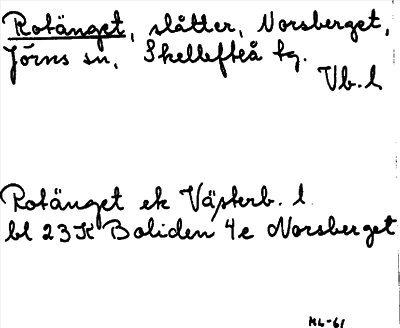 Rotänget, slåtter, Norsberget,
Jörns sn, Skellefteå tg.
Vb. l
Rotänget ek Västerb. l.
bl 23K Boliden 4e Norsberget
ML-61